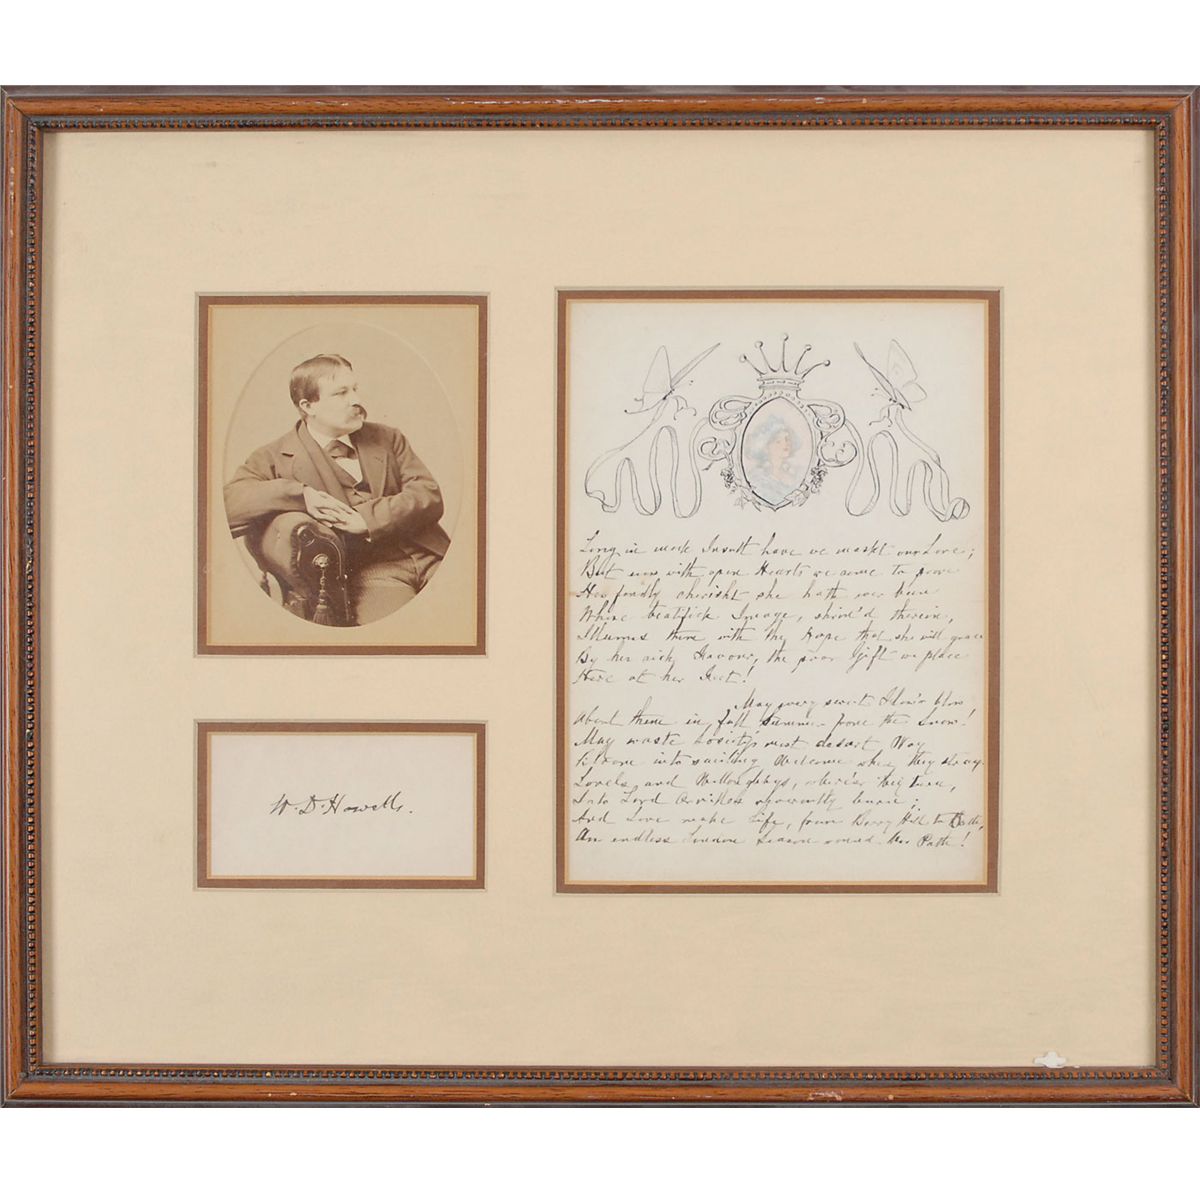 W. D. Howells.
Long in mock Insult have we maskt our Love;
But now with open Hearts we come to prove
How fondly cherisht she hath ever been
Whose beatifick Image, shrin'd therein,
Illumes them with the Hope that she will grace
By her rich Favour, the poor Gift we place
Here at her Feet!
May every sweet Flow'r blow
About them in full Summer from the Snow!
May waste Society's most desart Way
Bloom into smiling Welcome when they stray
Lovels and Willoughbys, where'er they turn,
Into Lord Orvilles
And Love make Life, from Berry Hill to Bath,
An endless London Season round her Path!